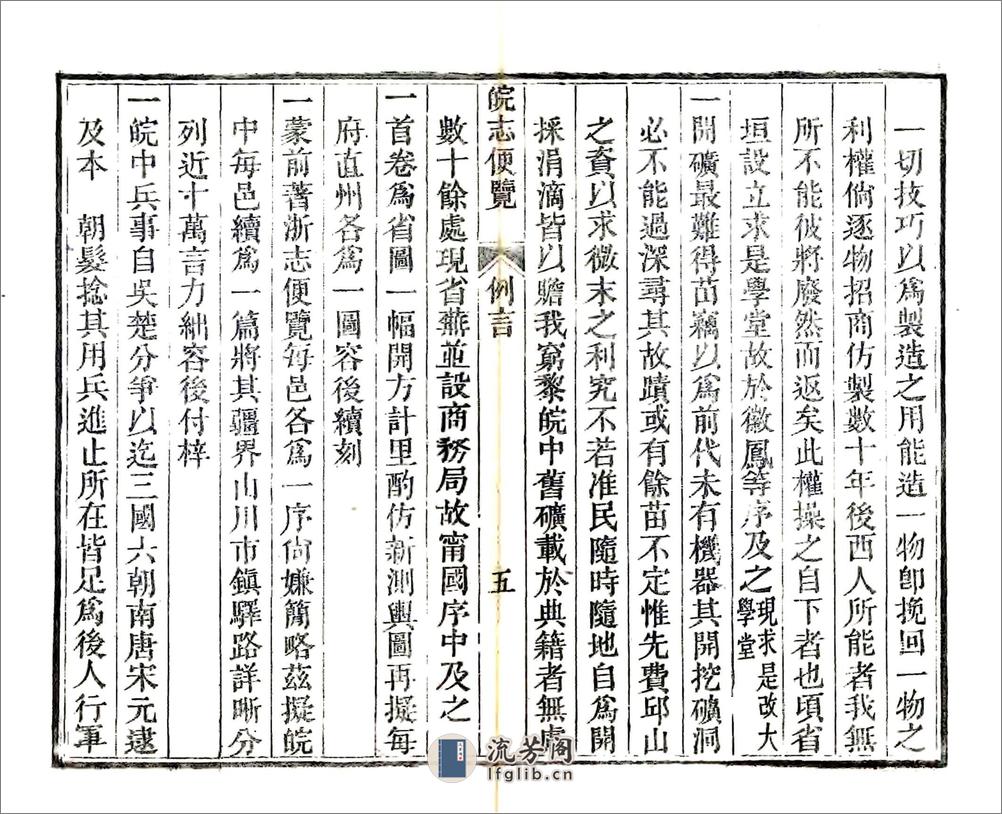 一切技巧以爲製造之用能造一物卽挽回一物之
利權倘逐物招商仿製數十年後西人所能者我無
所不能彼將廢然而返矣此權操之自下者也頃省
垣設立求是學堂故於徽鳳等序及之現求是改大學堂
一開礦最難得苗竊以爲前代未有機器其開挖礦洞
必不能過深尋其故蹟或有餘苗不定惟先費邱山
之資以求微末之利究不若准民隨時隨地自爲開
採涓滴皆以贍我窮黎皖中舊礦載於典籍者無慮
皖志便覽 例言 五
數十餘處現省蕪並設商務局故甯國序中及之
一首卷爲省圖一幅開方計里酌仿新測輿圖再擬每
府直州各爲一圖容後續刻
一蒙前著浙志便覽每邑各爲一序尙嫌簡略茲擬皖
中每邑續爲一篇將其疆界山川市鎭驛路詳晰分
列近十萬言力絀容後付梓
一皖中兵事自吳楚分爭以迄三國六朝南唐宋元逮
及本 朝髮捻其用兵進止所在皆足爲後人行軍
流芳阁
lfglib.cn